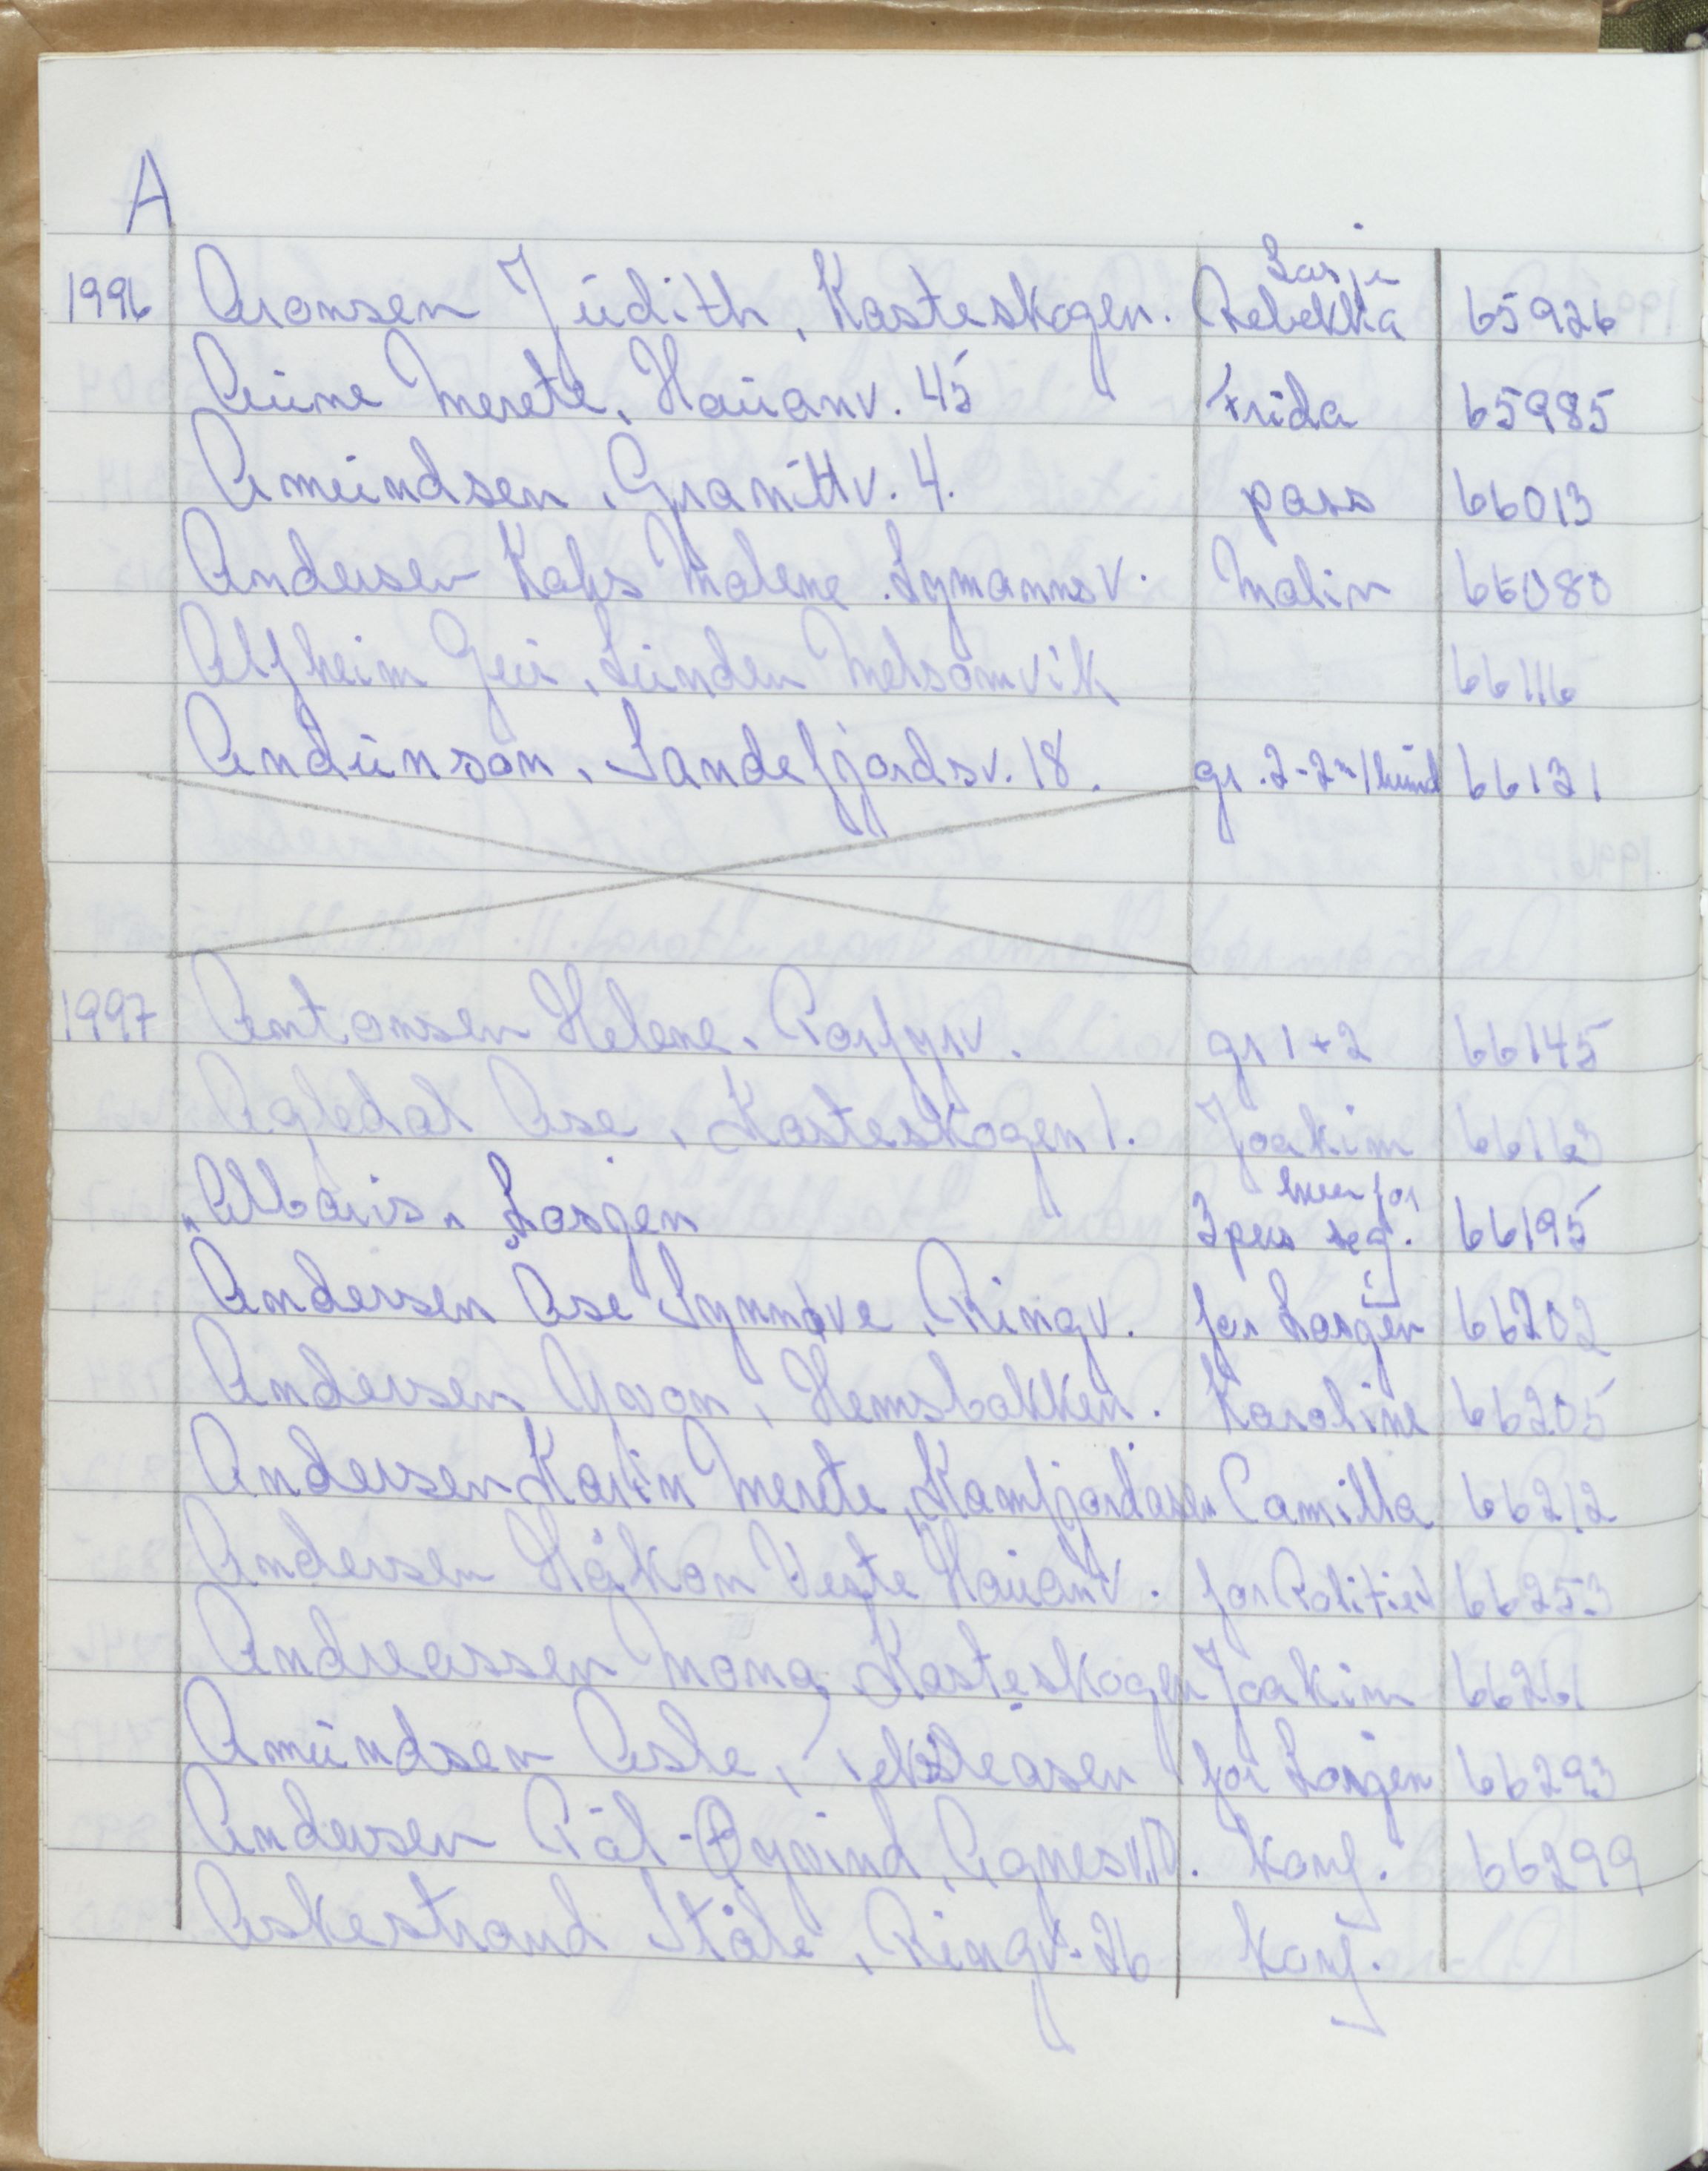 A
1996 Aronsen Judith, Kasteskogen. Lasse Rebekka 65926
Aune Merete, Hauanv. 45 Frida 65985
Amundsen, Granittv. 4. pass 66013
Andersen Kahs Malene. Lymannsv. Malin 66080
Alfheim Geir, Sunden Melsomvik 66116
Andunson, Sandefjordsv. 18. gr. 2-2 m/hund 66121
1997 Antonsen Helene, Porfyrv. gr 1+2 66145
Agledal Åse, Kasteskogen 1. Joakim 66163
"Albaris" Largen 3 pers 66195
Andersen Åse Synnøve, Ringv. for Largen 66202
Andersen Yvon, Hemsbakken. Karoline 66205
Andersen Karin Merete, Kamfjordåsen Camilla 66212
Andersen Håkon Veste Hauanv. for Politiet 66253
Andreassen Mona, Kasteskogen Joakim 66261
Amundsen Asle, for Largen 66293
Andersen Pål-Øyvind, Agnesv. Konf. 66299
Askestrand Ståle, Ringv. 26 Konf.